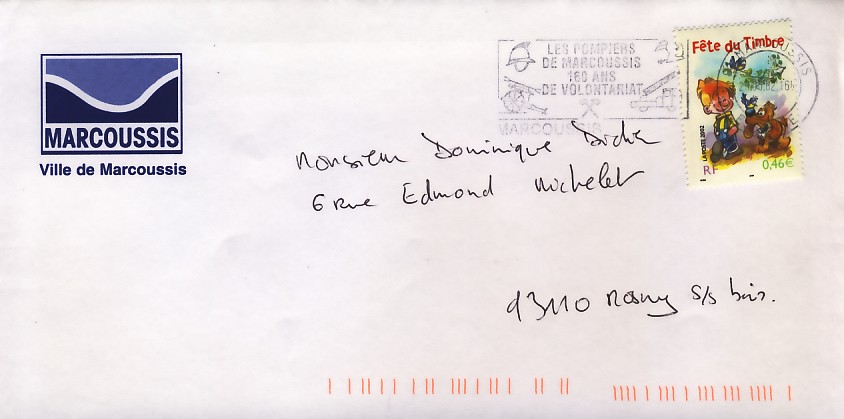 MARCOUSSIS
Ville de Marcoussis
LES POMPIERS
DE MARCOUSSIS
160 ANS
DE VOLONTARIAT
MARCOUSSIS
Fête du Timbre
LA POSTE 2002
RF
0,46€
Monsieur Dominique
6 rue Edmond Michelet
93110 Rosny s/s bois.